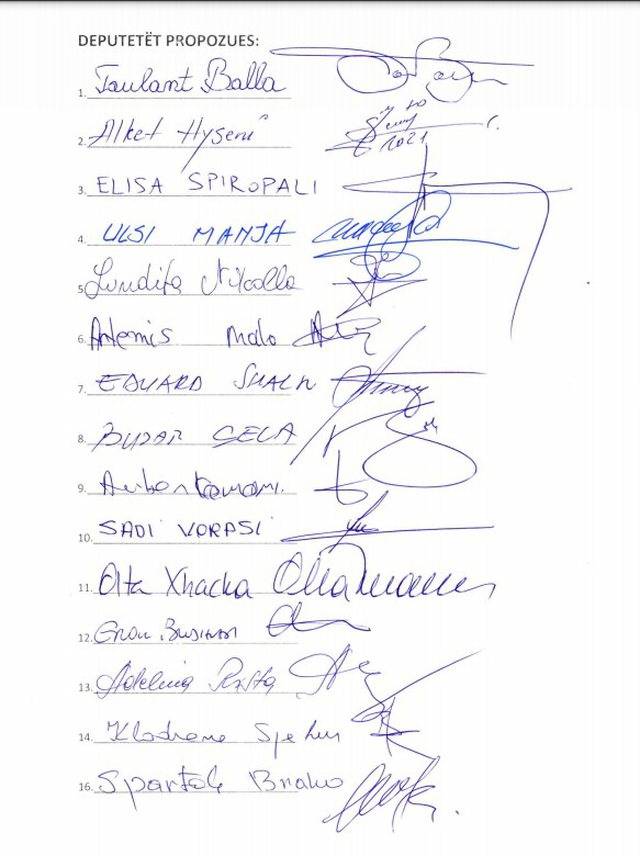 DEPUTETËT PROPOZUES:
1. Taulant Balla
2. Alket Hyseni
2021
3. ELISA SPIROPALI
4. ULSI MANJA
5. Lindita Nikolla
6. Artemis Malo
7. EDUARD SHALSI
8. BUJAR ÇELA
9.
10. SADI VORPSI
11. Olta Xhacka
12.
13. Adelina Rista
14. Klodiana Spahiu
16. Spartak Braho